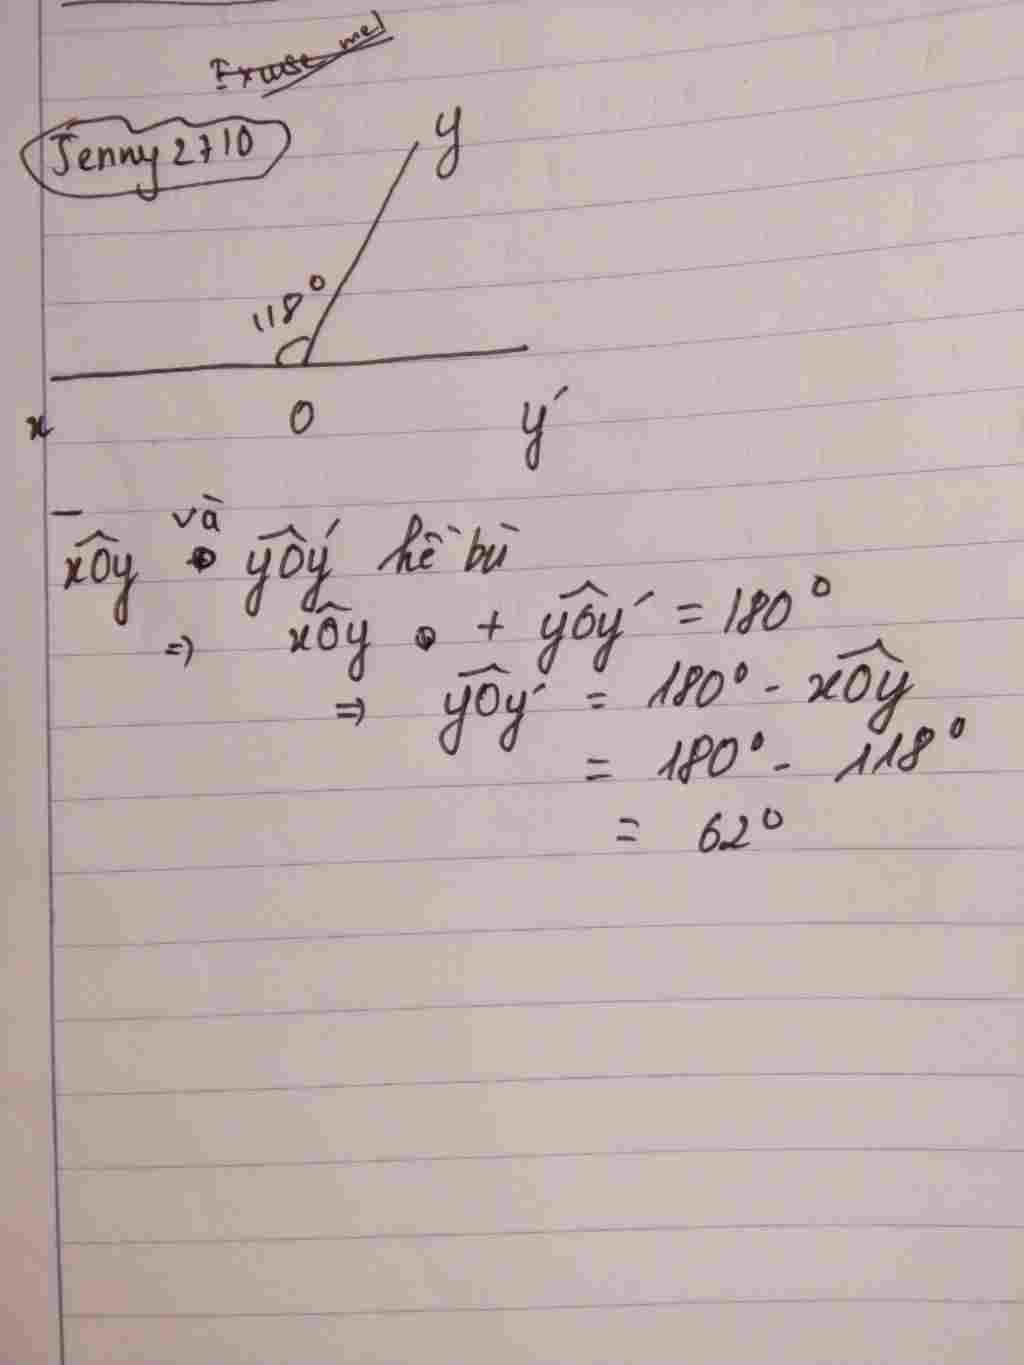 Excuse me!
Jenny 2710
y
118°
x O y'
xÔy và yÔy' kề bù
=> xÔy + yÔy' = 180°
=> yÔy' = 180° - xÔy
= 180° - 118°
= 62°